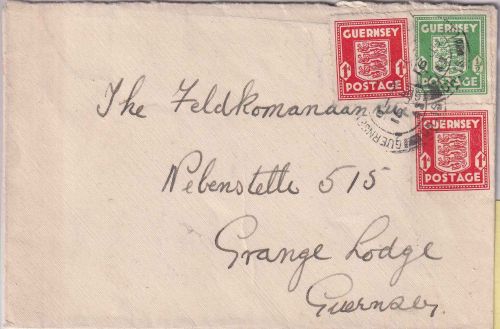 GUERNSEY
1D
POSTAGE
GUERNSEY
½D
POSTAGE
GUERNSEY
1D
POSTAGE
GUERNSEY
The Feldkomanaan
Nebenstelle 515
Grange Lodge
Guernsey